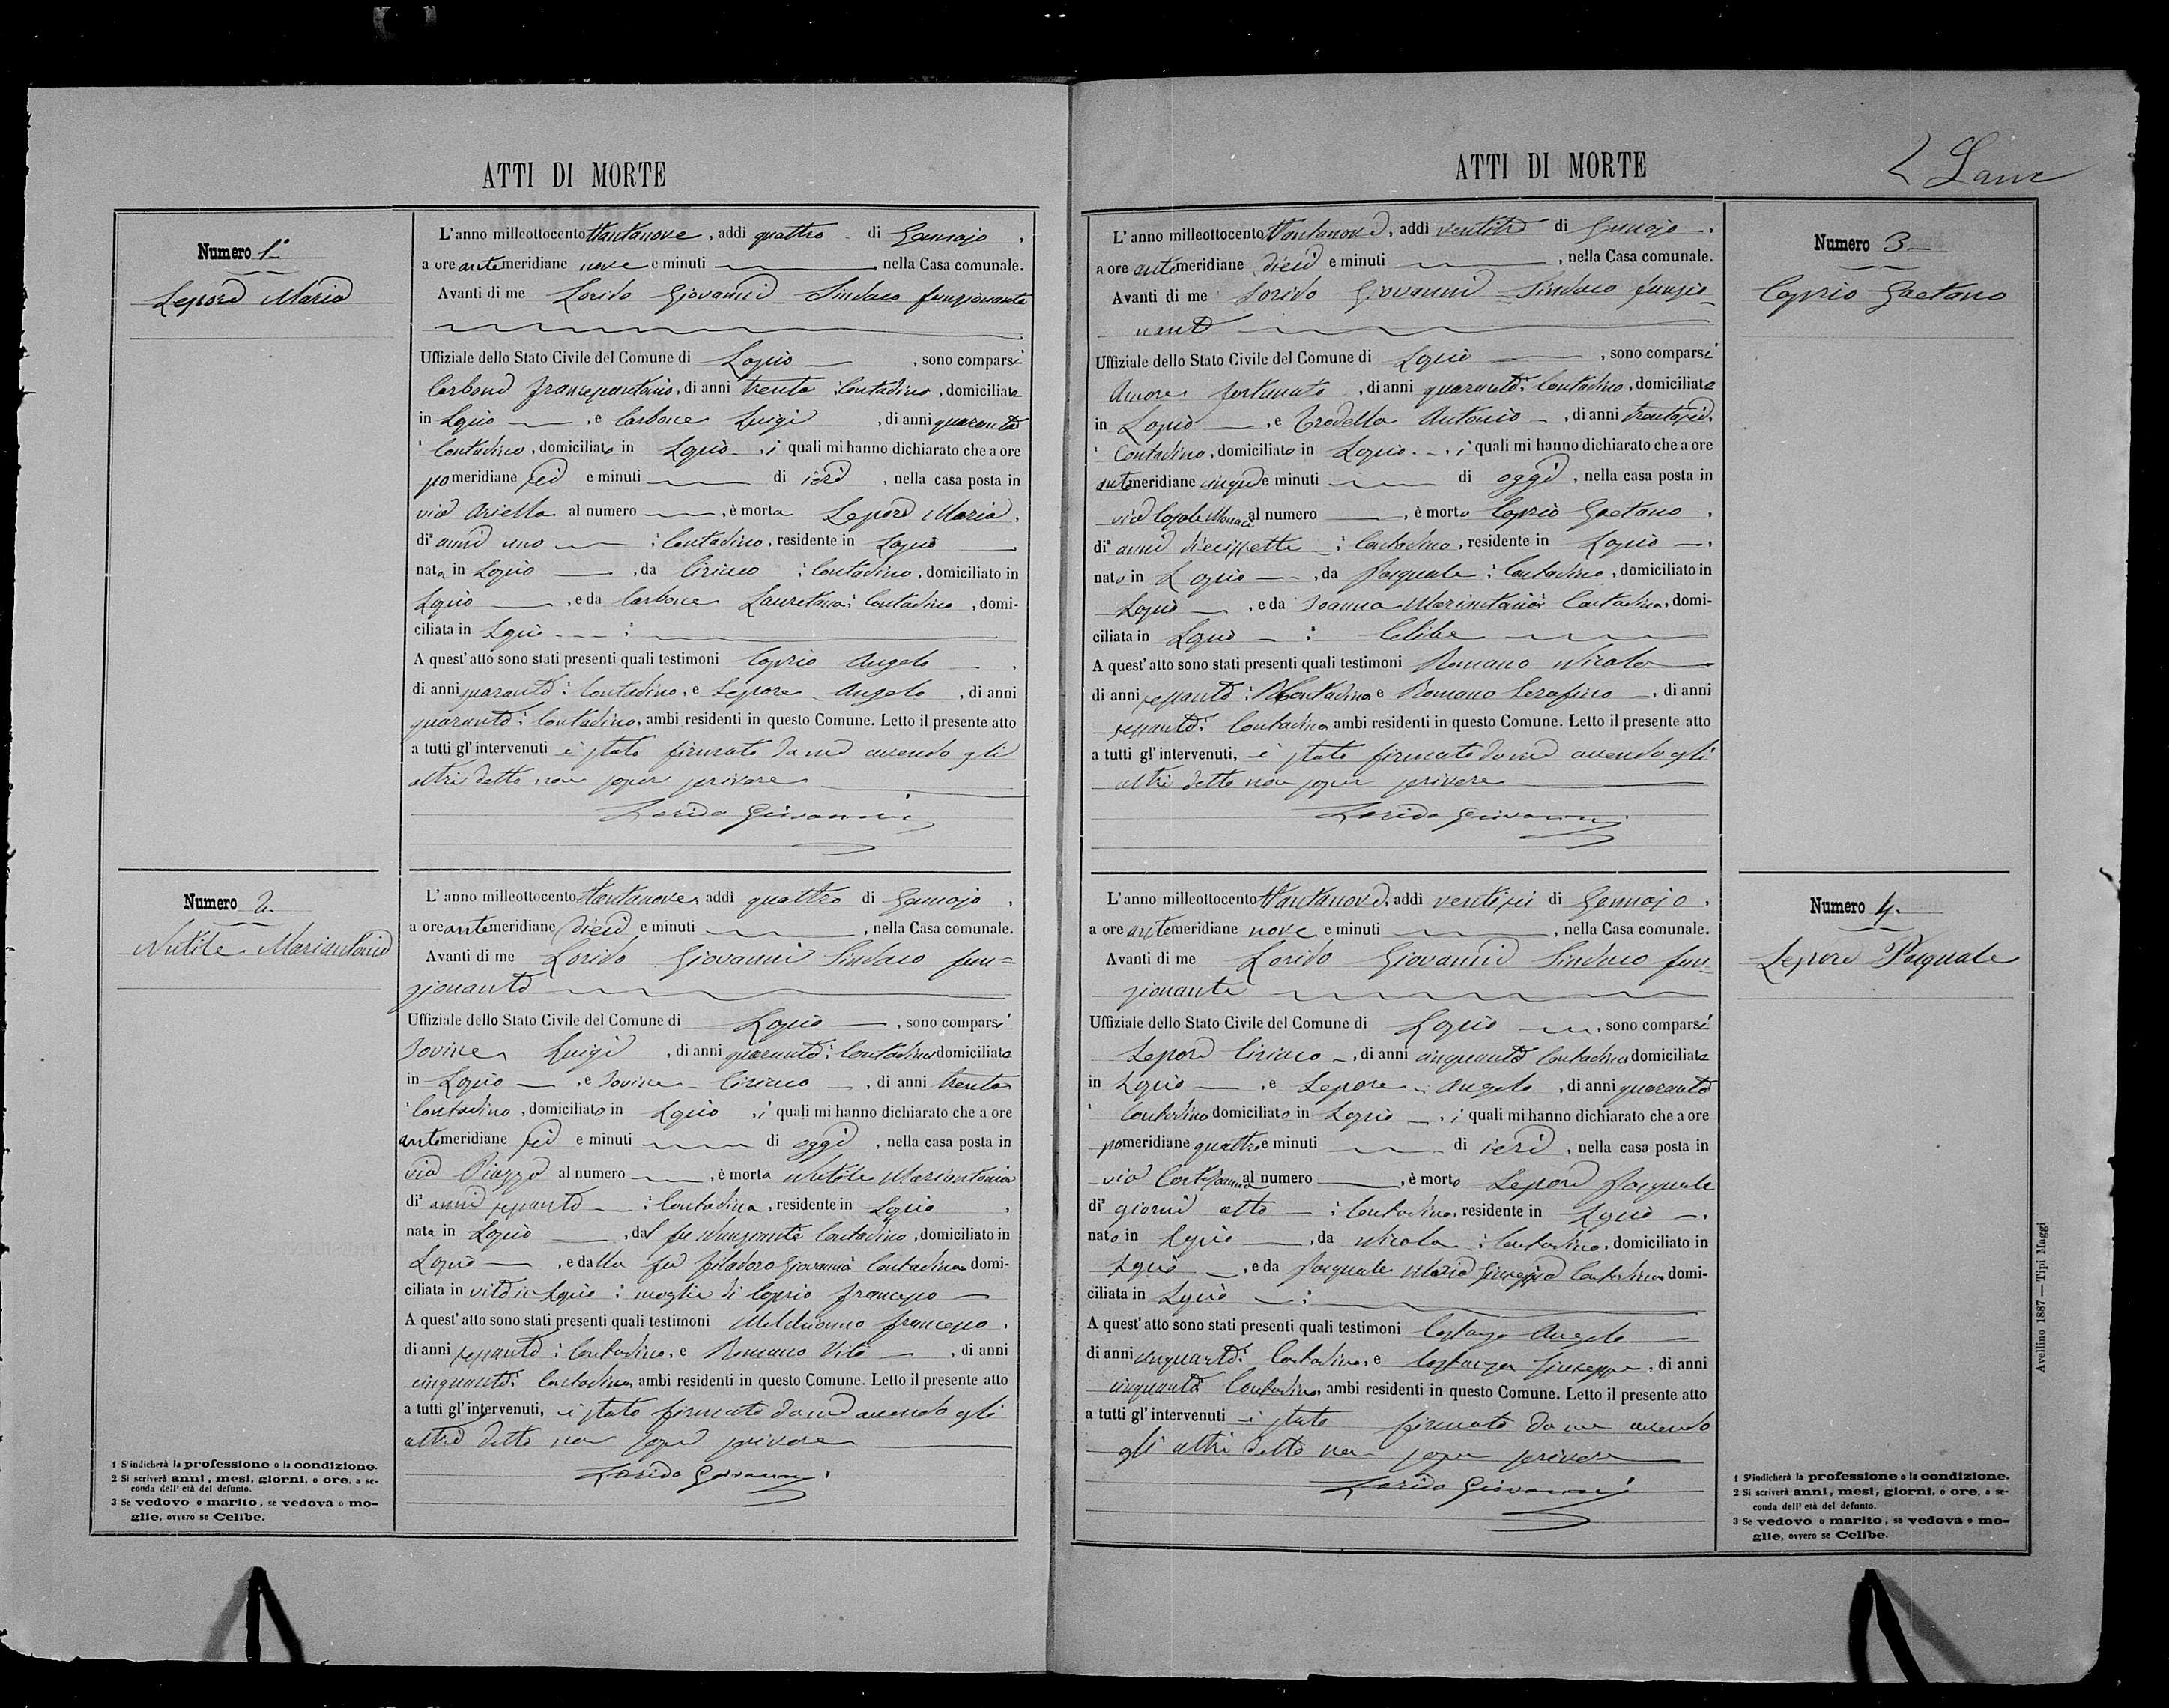 ATTI DI MORTE
Numero 1°
Lepore Maria
L'anno milleottocento ottantanove, addì quattro di Gennajo,
a ore antemeridiane nove e minuti , nella Casa comunale.
Avanti di me Lorido Giovanni Sindaco funzionante
Uffiziale dello Stato Civile del Comune di Lapio , sono comparsi
Carbone Francescantonio, di anni trenta Contadino, domiciliato
in Lapio , e Carbone Luigi , di anni quaranta
Contadino, domiciliato in Lapio , i quali mi hanno dichiarato che a ore
pomeridiane sei e minuti di ieri , nella casa posta in
via Ariella al numero , è morta Lepore Maria,
di anni uno Contadina, residente in Lapio
nata in Lapio , da Ciriaco Contadino, domiciliato in
Lapio , e da Carbone Lauretana Contadina, domi-
ciliata in Lapio
A quest'atto sono stati presenti quali testimoni Caprio Angelo ,
di anni quaranta Contadino, e Lepore Angelo , di anni
quaranta Contadino, ambi residenti in questo Comune. Letto il presente atto
a tutti gl'intervenuti è stato firmato da me avendo gli
altri detto non saper scrivere
Lorido Giovanni
Numero 2
Nutile Mariantonia
L'anno milleottocento ottantanove, addì quattro di Gennajo,
a ore antemeridiane dieci e minuti , nella Casa comunale.
Avanti di me Lorido Giovanni Sindaco fun=
zionante
Uffiziale dello Stato Civile del Comune di Lapio , sono comparsi
Iovine Luigi , di anni quaranta Contadino domiciliato
in Lapio , e Iovine Ciriaco , di anni trenta
Contadino, domiciliato in Lapio , i quali mi hanno dichiarato che a ore
antemeridiane sei e minuti di oggi , nella casa posta in
via Piazza al numero , è morta Nutile Mariantonia
di anni sessanta Contadina, residente in Lapio ,
nata in Lapio , dal fu Nunziante Contadino, domiciliato in
Lapio , e dalla fu Filadoro Giovanna Contadina domi-
ciliata in vita in Lapio : moglie di Caprio Francesco
A quest'atto sono stati presenti quali testimoni Francesco,
di anni sessanta Contadino, e Romano Vito , di anni
cinquanta Contadino, ambi residenti in questo Comune. Letto il presente atto
a tutti gl'intervenuti, è stato firmato da me avendo gli
altri detto non saper scrivere
Lorido Giovanni
1 S'indicherà la professione o la condizione.
2 Si scriverà anni, mesi, giorni, o ore, a se-
conda dell'età del defunto.
3 Se vedovo o marito, se vedova o mo-
glie, ovvero se Celibe.
ATTI DI MORTE
2
Numero 3
Caprio Gaetano
L'anno milleottocento ottantanove, addì ventitre di Gennajo,
a ore antemeridiane dieci e minuti , nella Casa comunale.
Avanti di me Lorido Giovanni Sindaco funzio=
nante
Uffiziale dello Stato Civile del Comune di Lapio , sono comparsi
Amore Fortunato , di anni quaranta Contadino, domiciliato
in Lapio , e Trodella Antonio , di anni trentasei,
Contadino, domiciliato in Lapio , i quali mi hanno dichiarato che a ore
antemeridiane cinque e minuti di oggi , nella casa posta in
via al numero , è morto Caprio Gaetano ,
di anni diecissette Contadino, residente in Lapio ,
nato in Lapio , da Pasquale Contadino, domiciliato in
Lapio , e da Contadina, domi-
ciliata in Lapio : Celibe
A quest'atto sono stati presenti quali testimoni Romano Nicola
di anni sessanta Contadino e Romano Serafino , di anni
sessanta Contadino ambi residenti in questo Comune. Letto il presente atto
a tutti gl'intervenuti, è stato firmato da me avendo gli
altri detto non saper scrivere
Lorido Giovanni
Numero 4
Lepore Pasquale
L'anno milleottocento ottantanove, addì ventisei di Gennajo,
a ore antemeridiane nove e minuti , nella Casa comunale.
Avanti di me Lorido Giovanni Sindaco fun-
zionante
Uffiziale dello Stato Civile del Comune di Lapio , sono comparsi
Lepore Ciriaco , di anni cinquanta Contadino domiciliato
in Lapio , e Lepore Angelo , di anni quaranta
Contadino domiciliato in Lapio , i quali mi hanno dichiarato che a ore
pomeridiane quattro e minuti di ieri , nella casa posta in
via al numero , è morto Lepore Pasquale
di giorni otto Contadino, residente in Lapio ,
nato in Lapio , da Nicola Contadino, domiciliato in
Lapio , e da Pasquale Maria Giuseppa Contadina domi-
ciliata in Lapio
A quest'atto sono stati presenti quali testimoni Costanza Angelo
di anni cinquanta Contadino, e Costanza Giuseppe, di anni
cinquanta Contadino, ambi residenti in questo Comune. Letto il presente atto
a tutti gl'intervenuti è stato firmato da me avendo
gli altri detto non saper scrivere
Lorido Giovanni
1 S'indicherà la professione o la condizione.
2 Si scriverà anni, mesi, giorni, o ore, a se-
conda dell'età del defunto.
3 Se vedovo o marito, se vedova o mo-
glie, ovvero se Celibe.
Avellino 1887 — Tipi Maggi